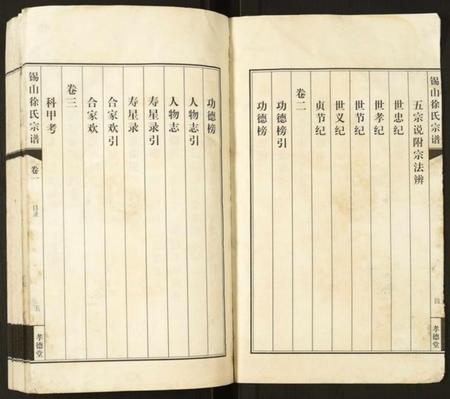 锡山徐氏宗谱
四
孝德堂
五宗说附宗法辨
世忠纪
世孝纪
世节纪
世义纪
贞节纪
卷二
功德榜引
功德榜
功德榜
人物志引
人物志
寿星录引
寿星录
合家欢引
合家欢
卷三
科甲考
锡山徐氏宗谱
卷一
目录
五
孝德堂